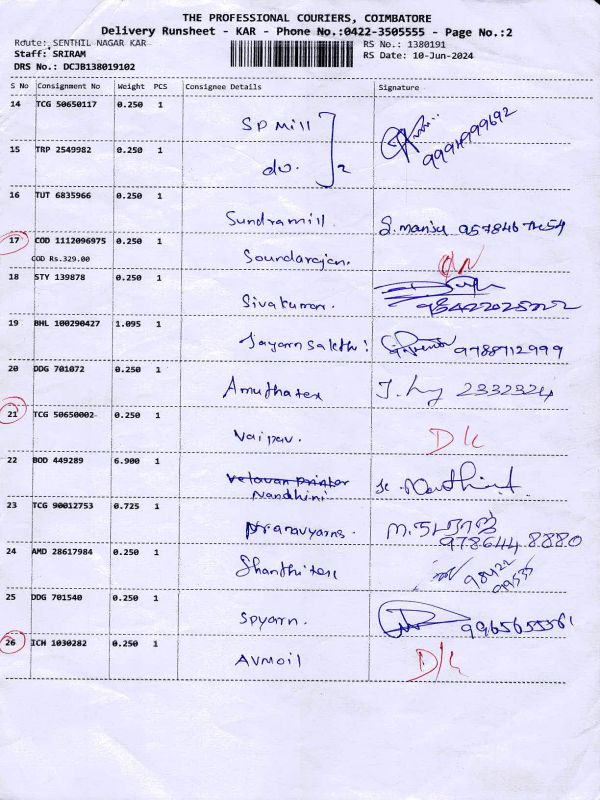 THE PROFESSIONAL COURIERS, COIMBATORE
Delivery Runsheet - KAR - Phone No.:0422-3505555 - Page No.:2
Route: SENTHIL NAGAR KAR RS No.: 1380191
Staff: SRIRAM RS Date: 10-Jun-2024
DRS No.: DCJB138019102
S No Consignment No Weight PCS Consignee Details Signature
14 TCG 50650117 0.250 1 SP Mill 9994999692
15 TRP 2549982 0.250 1 do. 2
16 TUT 6835966 0.250 1 Sundramill S. manju
17 COD 1112096975 0.250 1 Soundarajan.
COD Rs.329.00
18 STY 139878 0.250 1 Sivakumar.
19 BHL 100290427 1.095 1 Jayamsakthi 9788712999
20 DDG 701072 0.250 1 Amuthatex 2332324
21 TCG 50650002 0.250 1 Vaipav. D/L
22 BOD 449289 6.900 1 Velavan printer
Nandhini
23 TCG 90012753 0.725 1 Pranavyarns. ம.நடராஜ்
978644 8880
24 AMD 28617984 0.250 1 Shanthitex 98422
25 DDG 701540 0.250 1 Spyarn. 9965655561
26 ICH 1030282 0.250 1 AVMoil D/L